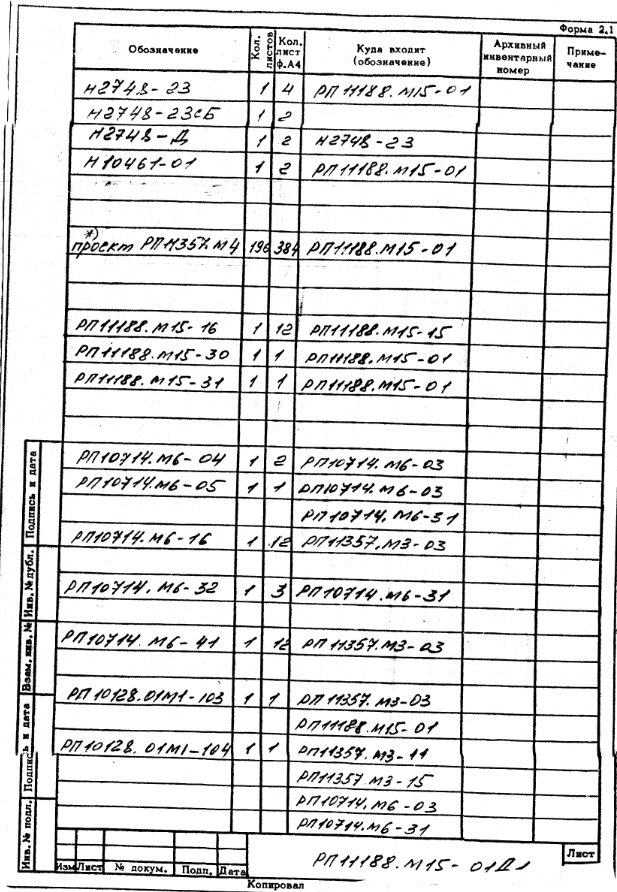 Форма 2.1
Обозначение Кол. листов Кол. лист ф.А4 Куда входит (обозначение) Архивный инвентарный номер Примечание
Н2748-23 1 4 РП11188.М15-01
Н2748-23сБ 1 2
Н2748-Д 1 2 Н2748-23
Н10461-01 1 2 РП11188.М15-01
*)
проект РП11357.М4 196 384 РП11188.М15-01
РП11188.М15-16 1 12 РП11188.М15-15
РП11188.М15-30 1 1 РП11188.М15-01
РП11188.М15-31 1 1 РП11188.М15-01
РП10714.М6-04 1 2 РП10714.М6-03
РП10714.М6-05 1 1 РП10714.М6-03
РП10714.М6-31
РП10714.М6-16 1 12 РП11357.М3-03
РП10714.М6-32 1 3 РП10714.М6-31
РП10714.М6-41 1 12 РП11357.М3-03
РП10128.01М1-103 1 1 РП11357.М3-03
РП11188.М15-01
РП10128.01М1-104 1 1 РП11357.М3-11
РП11357.М3-15
РП10714.М6-03
РП10714.М6-31
Подпись и дата
Инв. № дубл.
Взам. инв. №
Подпись и дата
Инв. № подл.
Изм Лист № докум. Подп. Дата
РП11188.М15-01Д1
Лист
Копировал